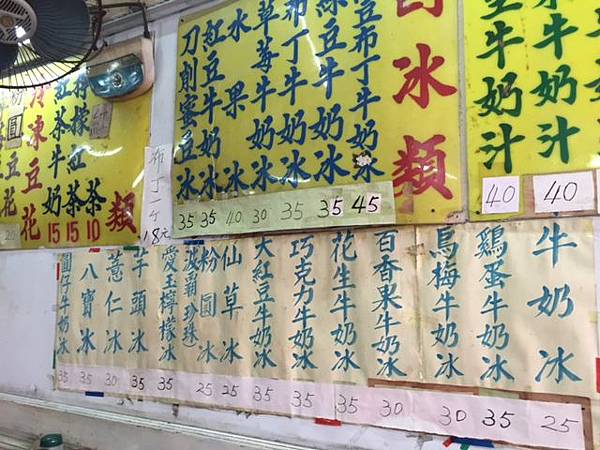 冰類
豆布丁牛奶冰
綠豆牛奶冰
布丁牛奶冰
草莓牛奶冰
水果冰
紅豆牛奶冰
刀削蜜豆冰
35 35 40 30 35 35 45
牛奶汁
牛奶汁
40 40
類
檸檬紅茶
紅茶牛奶
冷凍豆花
豆花
15 15 10
布丁一个
18元
牛奶冰
雞蛋牛奶冰
烏梅牛奶冰
百香果牛奶冰
花生牛奶冰
巧克力牛奶冰
大紅豆牛奶冰
仙草冰
粉圓冰
波霸珍珠
愛玉檸檬冰
芋頭冰
薏仁冰
八寶冰
圓仔牛奶冰
35 35 30 35 35 25 25 35 35 35 30 30 35 25